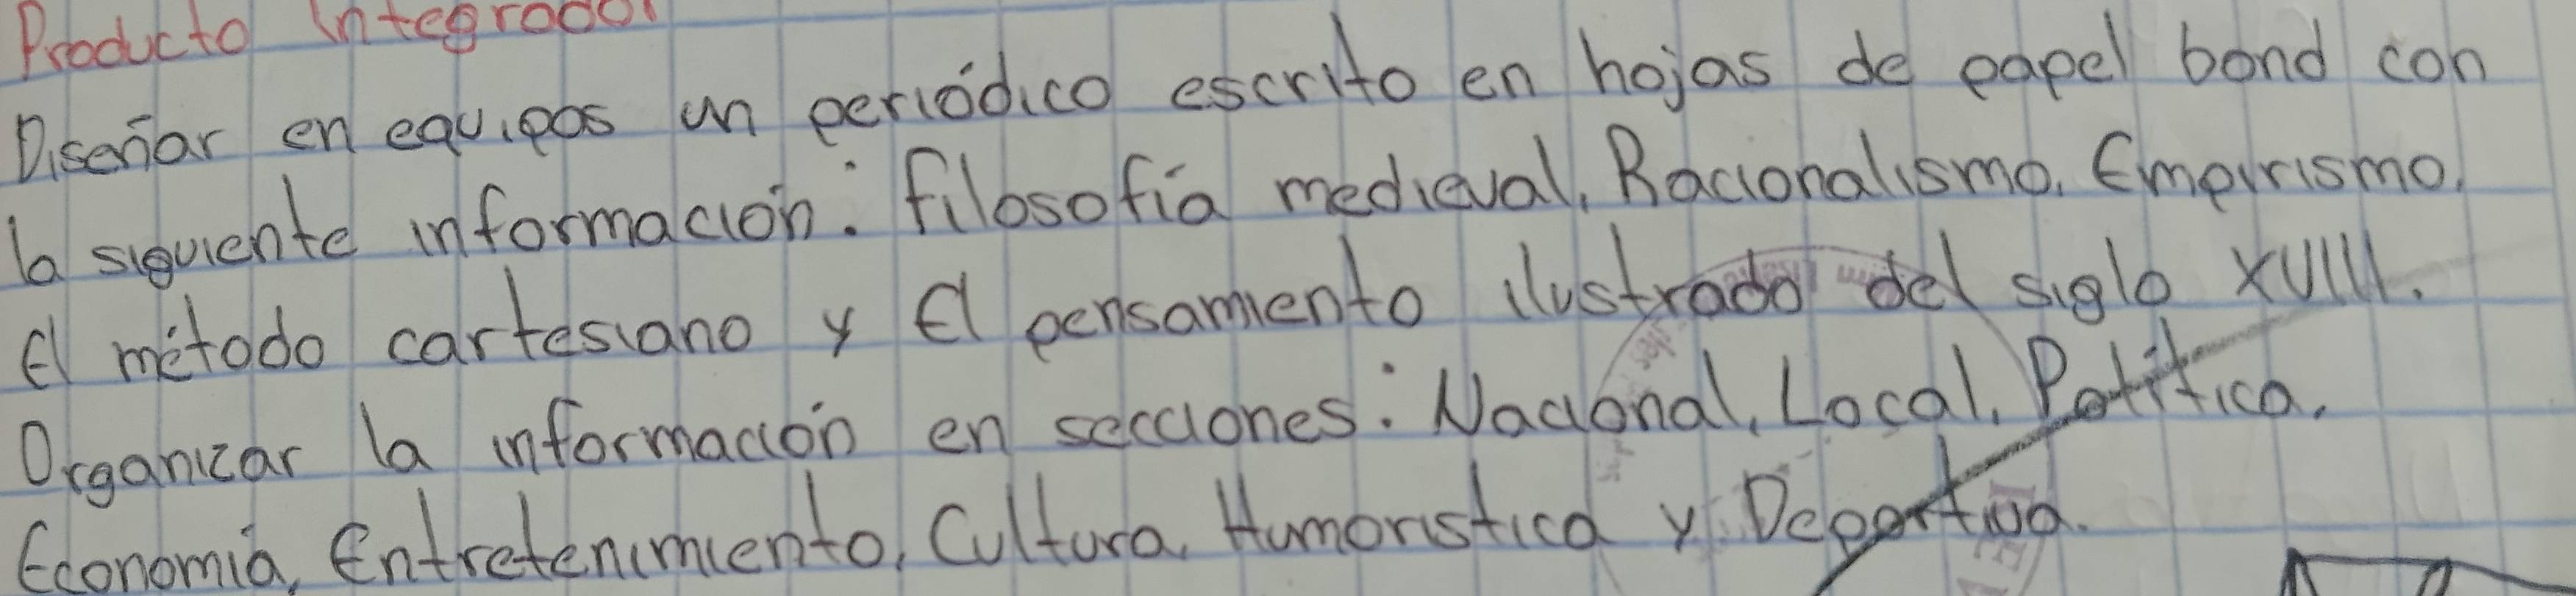 Producto Integrador
Diseñar en equipos un periódico escrito en hojas de papel bond con
la siguiente información: filosofía medieval, Racionalismo, Empirismo,
El método cartesiano y El pensamiento ilustrado del siglo XVIII.
Organizar la información en secciones: Nacional, Local, Política,
Economía, Entretenimiento, Cultura, Humorística y Deportiva.